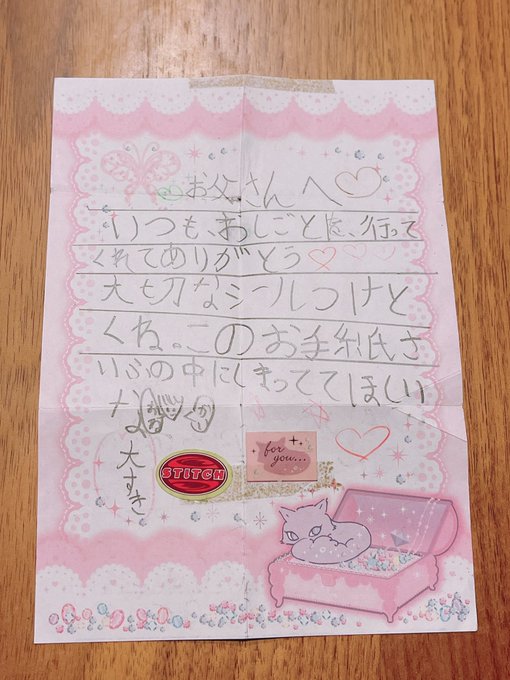 お父さんへ
いつも、おしごとを、行って
くれてありがとう
大切なシールつけと
くね。このお手紙さ
いふの中にしまっててほしい
な
大すき
STITCH
for
you...